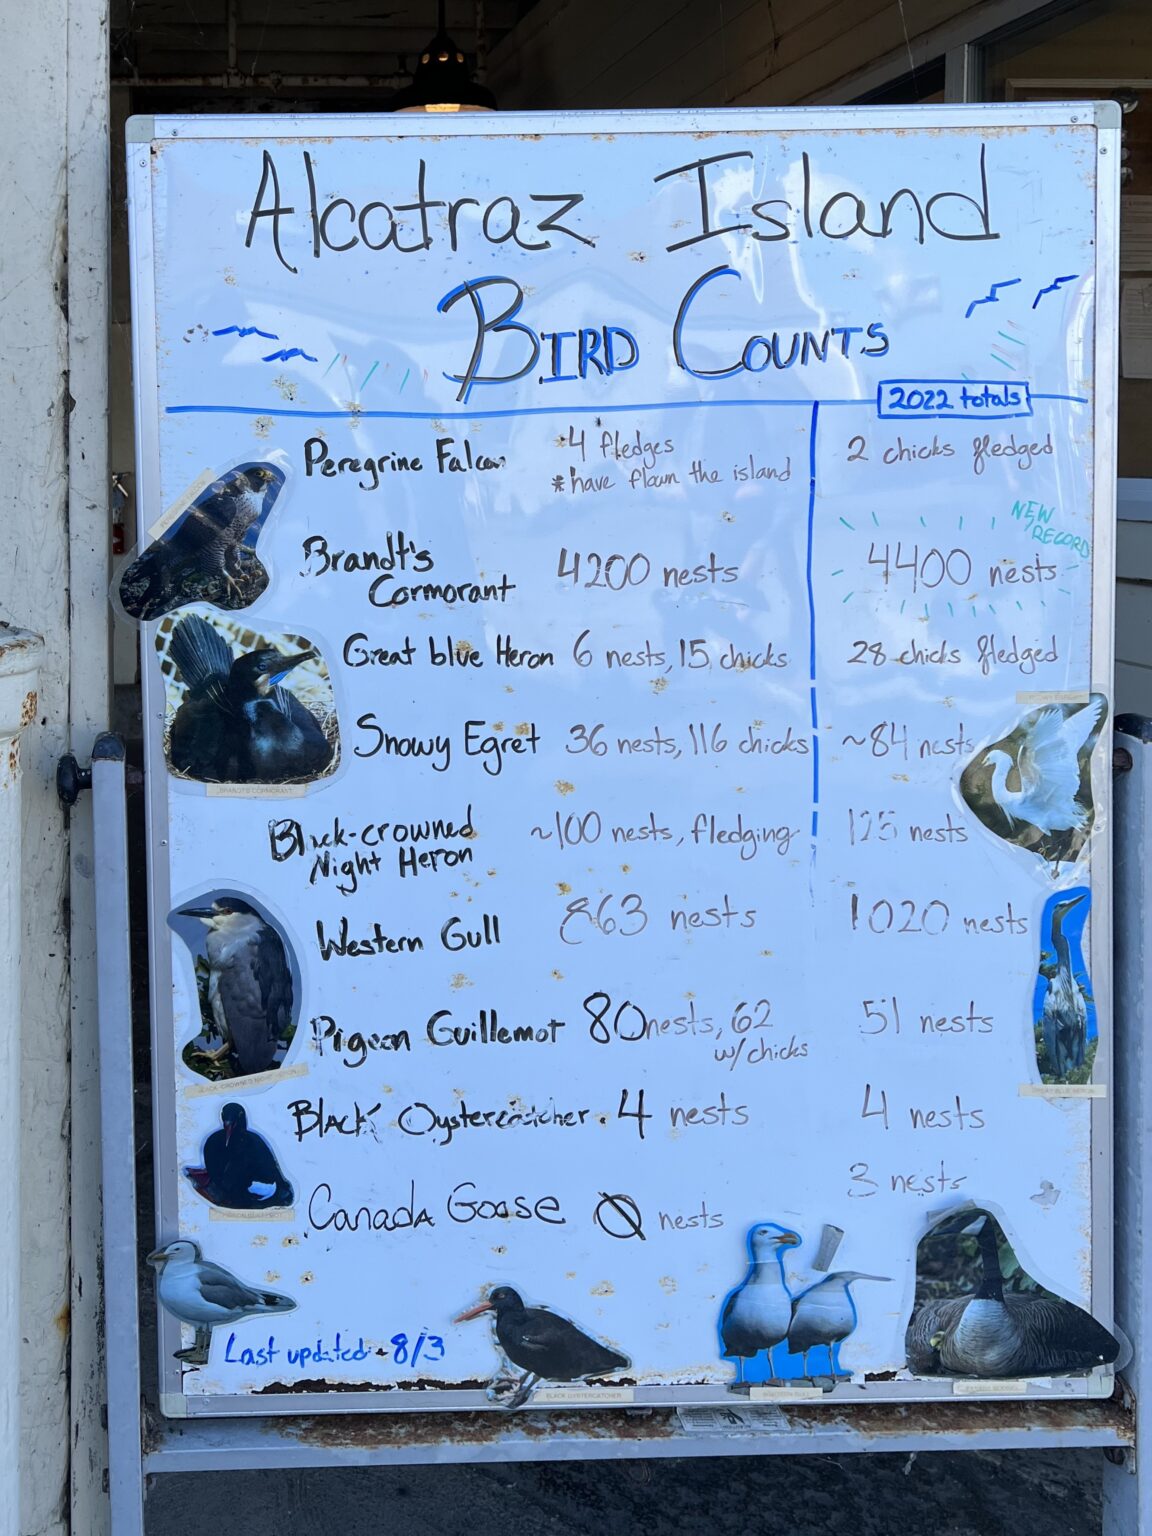 Alcatraz Island
BIRD COUNTS
2022 totals
Peregrine Falcon 4 fledges 2 chicks fledged
*have flown the island
NEW RECORD
Brandt's Cormorant 4200 nests 4400 nests
Great blue Heron 6 nests, 15 chicks 28 chicks fledged
Snowy Egret 36 nests, 116 chicks ~84 nests
Black-crowned Night Heron ~100 nests, fledging 125 nests
Western Gull 863 nests 1020 nests
Pigeon Guillemot 80 nests, 62 w/ chicks 51 nests
Black Oystercatcher 4 nests 4 nests
Canada Goose Ø nests 3 nests
Last updated - 8/3
BRANDT'S CORMORANT
BLACK-CROWNED NIGHT HERON
BLACK OYSTERCATCHER
WESTERN GULL